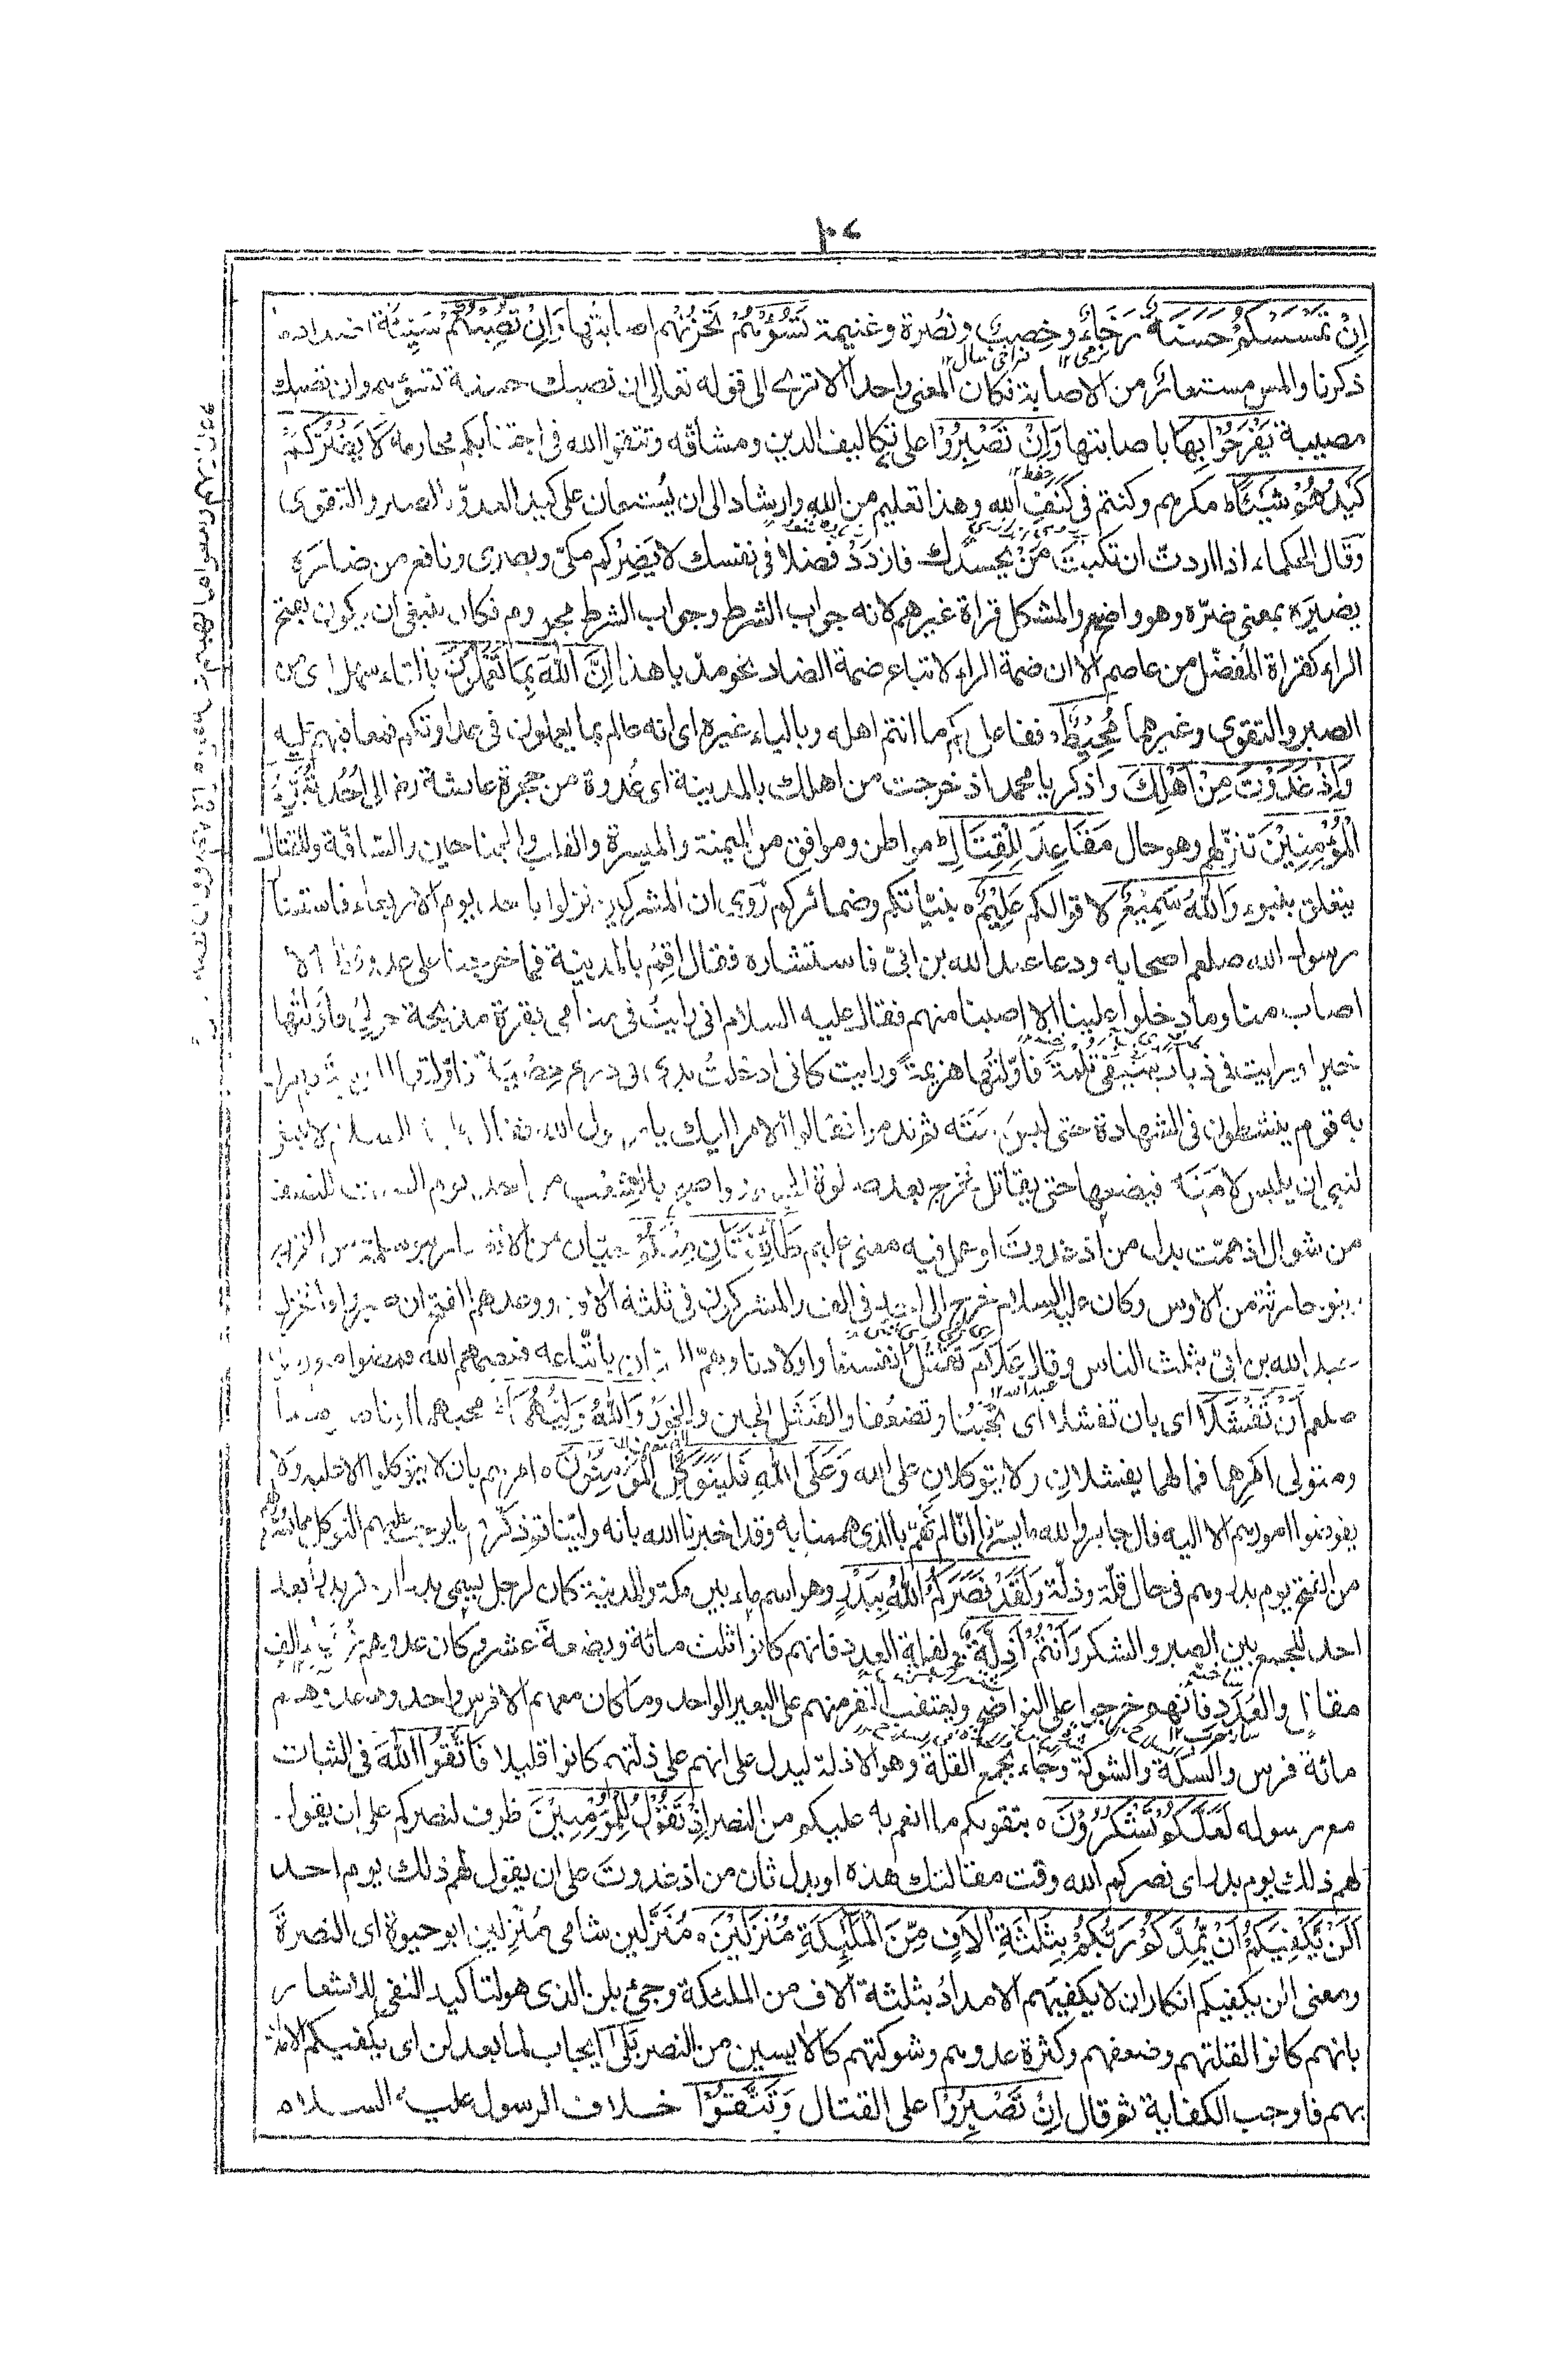 اِنْ تَمْسَسْكُمْ حَسَنَةٌ رَخَاءٌ وخِصبٌ ونُصْرة وغنيمة تَسُؤْهُمْ تَحْزُنْهُم اصابتها وَاِنْ تُصِبْكُمْ سَيِّئَةٌ اضداد
ذكرنا والمس مستعارٌ من الاصابة فكان المعنى واحدا الا ترى الى قوله تعالى ان تصبك حسنة تسؤهم وان تصبك
مصيبة يَفْرَحُوْا بِهَا باصابتها وَاِنْ تَصْبِرُوْا على تكاليف الدين ومشاقّه وتتقوا الله فى اجتنابكم محارمه لَا يَضُرُّكُمْ
كَيْدُهُمْ شَيْئًا ه مكرهم وكنتم فى كَنَفِ الله وهذا تعليم من الله وارشاد الى ان يُستعان على كيد العدوّ بالصبر والتقوى
وقال الحكماء اذا اردتَ ان تكبتَ مَنْ يحسدك فازدَدْ فضلا فى نفسك لا يَضِرْكم مكىّ وبصرى ونافع من ضاره
يضيره بمعنى ضرّه وهو واضح والمشكل قراة غيرهم لانه جواب الشرط وجواب الشرط مجزوم فكان ينبغى ان يكون بفتح
الراء كقراة المُفضّل عن عاصم الا ان ضمة الراء لاتباع ضمة الضاد نحو مدّ يا هذا اِنَّ اللّٰهَ بِمَا تَعْمَلُوْنَ بالتاء سهل اى من
الصبر والتقوى وغيرهما مُحِيْطٌ ففاعل بكم ما انتم اهله وبالياء غيره اى انه عالم بما يعملون فى عداوتكم فمعاقبهم عليه
وَاِذْ غَدَوْتَ مِنْ اَهْلِكَ واذكر يا محمد اذ خرجت من اهلك بالمدينة اى غُدوة من حجرة عائشة رض الى اُحُد تُبَوِّئُ
الْمُؤْمِنِيْنَ تنزلهم وهو حال مَقَاعِدَ لِلْقِتَالِ مواطن ومواقف من الميمنة والميسرة والقلب والجناحين والساقة وللقتال
يتعلق بتبوء وَاللّٰهُ سَمِيْعٌ لاقوالكم عَلِيْمٌ ه بنيّاتكم وضمائركم رُوى ان المشركين نزلوا باحد يوم الاربعاء فاستشا
رسول الله صلعم اصحابه ودعا عبد الله بن ابىّ فاستشاره فقال اقِمْ بالمدينة فما خرجنا على عدو قط الا
اصاب منا وما دخلوا علينا الا اصبنا منهم فقال عليه السلام انى رايتُ فى منامى بقرة مذبحة حولى فاَوّلتُها
خيرا ورايت فى ذباب سيفى ثلمة فاوّلتُها هزيمةً ورايت كانى ادخلتُ يدى فى درع حَصينة فاوّلتها المدينة فلم يزل
به قوم ينشطون فى الشهادة حتى لبس لامته ثم ندموا فقالوا الامر اليك يا رسول الله فقال عليه السلام لا ينبغى
لنبى ان يلبس لامته فيضعها حتى يقاتل فخرج بعد صلوة الجمعة واصبح بالشِّعْب من احد يوم السبت للنصف
من شوال اِذ هَمّت بدل من اذ غدوتَ او عمل فيه معنى عليم طَآئِفَتَانِ مِنْكُمْ حيّان من الانصار بنو سلمة من الخزرج
وبنو حارثة من الاوس وكان عليه السلام خرج الى احد فى الف والمشركون فى ثلثة الاف ووعدهم الفتح ان صبروا فانخزل
عبد الله بن ابىّ بثلث الناس وقال عَلَامَ نقتُلُ انفسنا واولادنا وهمّ الحيّان باتّباعه فعصمهم الله فمضوا مع رسول
صلعم اَنْ تَفْشَلَا اى بان تفشلا اى تَجْبُنا وتضعفا والفَشَل الجبن والخَوَرُ وَاللّٰهُ وَلِيُّهُمَا محبهما او ناصرهما
ومتولى امرهما فما لهما يفشلان ولا يتوكلان على الله وَعَلَى اللّٰهِ فَلْيَتَوَكَّلِ الْمُؤْمِنُوْنَ ه امرهم بان لا يتوكلوا الا عليه ولا
يفوضوا امورهم الا اليه قال جابر والله ما يسرّنا انّا لم نَهمّ بالذى هممنا به وقد اخبرنا الله بانه وليّنا ثم ذكّرهم ما يوجب عليهم التوكل مما يسّر لهم
من الفتح يوم بدر وهم فى حال قلّة وذلّة وَلَقَدْ نَصَرَكُمُ اللّٰهُ بِبَدْرٍ وهو اسم ماء بين مكة والمدينة كان لرجل يسمى بدرا ذكر بدرا بعد
احد للجمع بين الصبر والشكر وَاَنْتُمْ اَذِلَّةٌ لقلة العدد فانهم كانوا ثلث مائة وبضعةَ عشر وكان عدوهم زهاء الف
مقاتل والعُدَد فانهم خرجوا على النواضح ويعتقب النفر منهم على البعير الواحد وما كان معهم الا فرس واحد ومع عدوهم
مائة فرس والشكة والشوكة وجاء بجمع القلة وهو الاذلة ليدل على انهم على ذلّتهم كانوا قليلا فَاتَّقُوا اللّٰهَ فى الثبات
مع رسوله لَعَلَّكُمْ تَشْكُرُوْنَ ه بتقوىكم ما انعم به عليكم من النصر اِذْ تَقُوْلُ لِلْمُؤْمِنِيْنَ ظرف لنصركم على ان يقول
لهم ذلك يوم بدر اى نصركم الله وقت مقالتك هذه او بدل ثان من اذ غدوتَ على ان يقول لهم ذلك يوم احد
اَلَنْ يَّكْفِيَكُمْ اَنْ يُّمِدَّكُمْ رَبُّكُمْ بِثَلٰثَةِ اٰلَافٍ مِّنَ الْمَلٰٓئِكَةِ مُنْزَلِيْنَ ه مُنَزَّلين شامى مُنْزِلين ابو حيوة اى النصرةَ
ومعنى الن يكفيكم انكار ان لا يكفيهم الامدادُ بثلثة الاف من الملئكة وجئ بلن الذى هو لتاكيد النفى للاشعار
بانهم كانوا لقلتهم وضعفهم وكثرة عدوهم وشوكتهم كالآيسين من النصر بَلٰى ايجاب لما بعد لن اى يكفيكم الامداد
بهم فاوجب الكفاية ثم قال اِنْ تَصْبِرُوْا على القتال وَتَتَّقُوْا خلاف الرسول عليه السلام